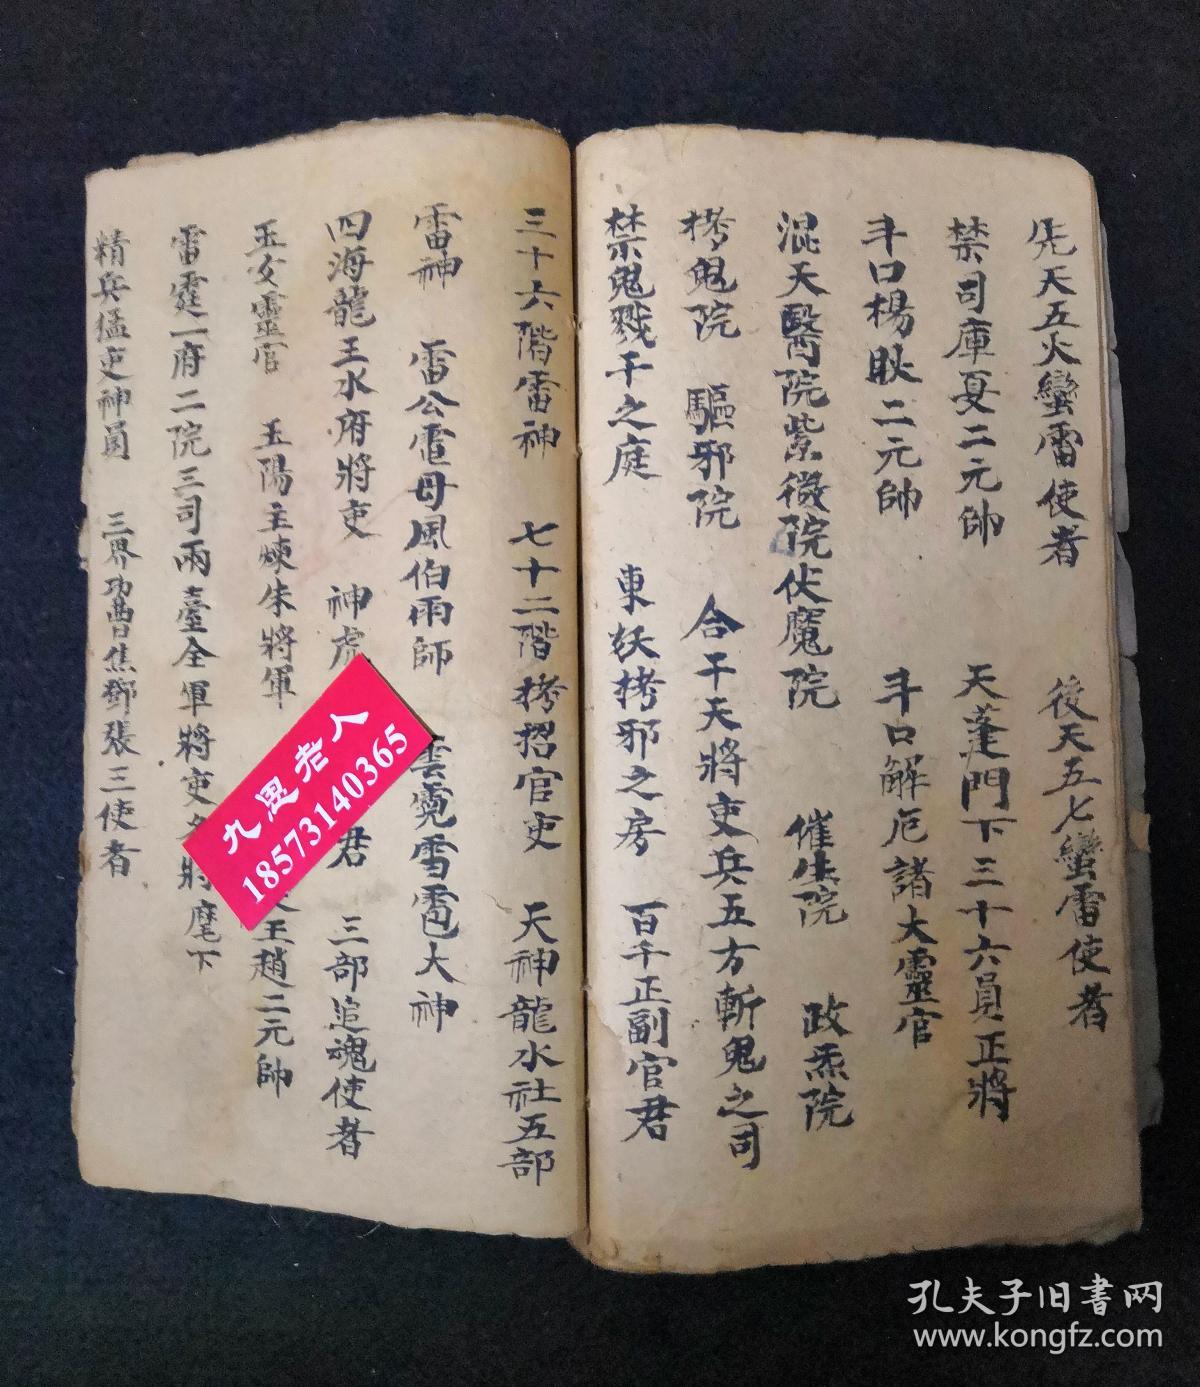 先天五火蠻雷使者 後天五七蠻雷使者
禁司庫夏二元帥 天蓬門下三十六員正將
斗口楊耿二元帥 斗口解厄諸大靈官
混天醫院紫微院伏魔院 催生院 政炁院
拷鬼院 驅邪院 合干天將吏兵五方斬鬼之司
禁鬼戮干之庭 東妖拷邪之房 百千正副官君
三十六階雷神 七十二階拷招官吏 天神龍水社五部
雷神 雷公電母風伯雨師 雲霓雪雹大神
四海龍王水府將吏 神虎 君 三部追魂使者
玉女靈官 玉陽主煉朱將軍 王趙二元帥
雷霆一府二院三司兩臺全軍將吏 將麾下
精兵猛吏神員 三界功曹焦鄧張三使者
九思老人
18573140365
孔夫子旧书网
www.kongfz.com